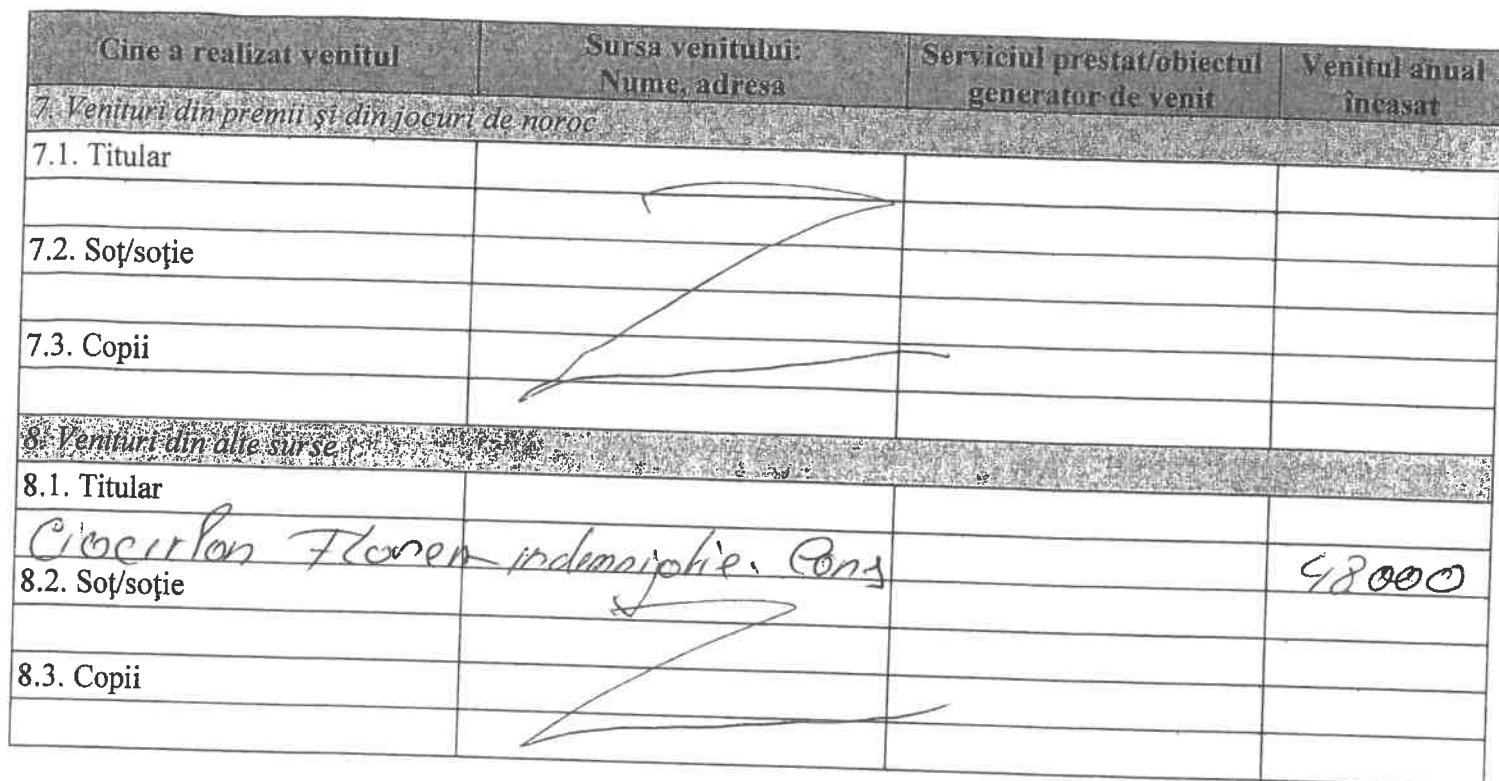 Cine a realizat venitul
Sursa venitului:
Nume, adresa
Serviciul prestat/obiectul
generator de venit
Venitul anual
încasat
7. Venituri din premii şi din jocuri de noroc
7.1. Titular
7.2. Soţ/soţie
7.3. Copii
8. Venituri din alte surse
8.1. Titular
Ciocirlan indemnizatie. Cons 48000
8.2. Soţ/soţie
8.3. Copii